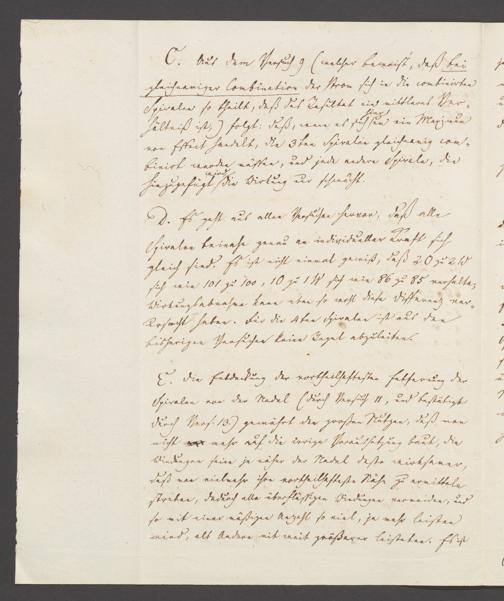 C. Aus dem Versuch 9 (welcher beweist, daß bei
gleichnamiger Combination der Strom sich in die combinirten
Spiralen so theilt, daß das Resultat ein mittleres Ver-
hältniß ist,) folgt: daß, wenn es sich um ein Maximum
von Effect handelt, die 3ten Spiralen gleichnamig com-
binirt werden müssen, und jede andere Spirale, die
hinzugefügt wird die Wirkung nur schwächt.
D. Es geht aus allen Versuchen hervor, daß alle
Spiralen beinahe genau an individueller Kraft sich
gleich sind. Es ist nicht einmal gewiß, daß
sich wie 101 zu 100, sich wie 86 zu 85 verhalte;
Wirkungsabnahme kann eben so wohl diese Differenz ver-
ursacht haben. Für die 4ten Spiralen ist aus den
bisherigen Versuchen keine Regel abzuleiten.
E. Die Entdeckung der vortheilhaftesten Entfernung der
Spiralen von der Nadel (durch Versuch 11, und bestätigt
durch Vers. 13.) gewährt den großen Nutzen, daß man
nicht mehr auf die irrige Voraussetzung baut, die
Windungen seien je näher der Nadel desto wirksamer,
daß man vielmehr ihre vortheilhafteste Nähe zu ermitteln
streben, dadurch alle überflüssigen Windungen vermeiden, und
so mit einer mäßigen Anzahl so viel, ja mehr leisten
wird, als Andere mit weit größerer leisteten. Es ist